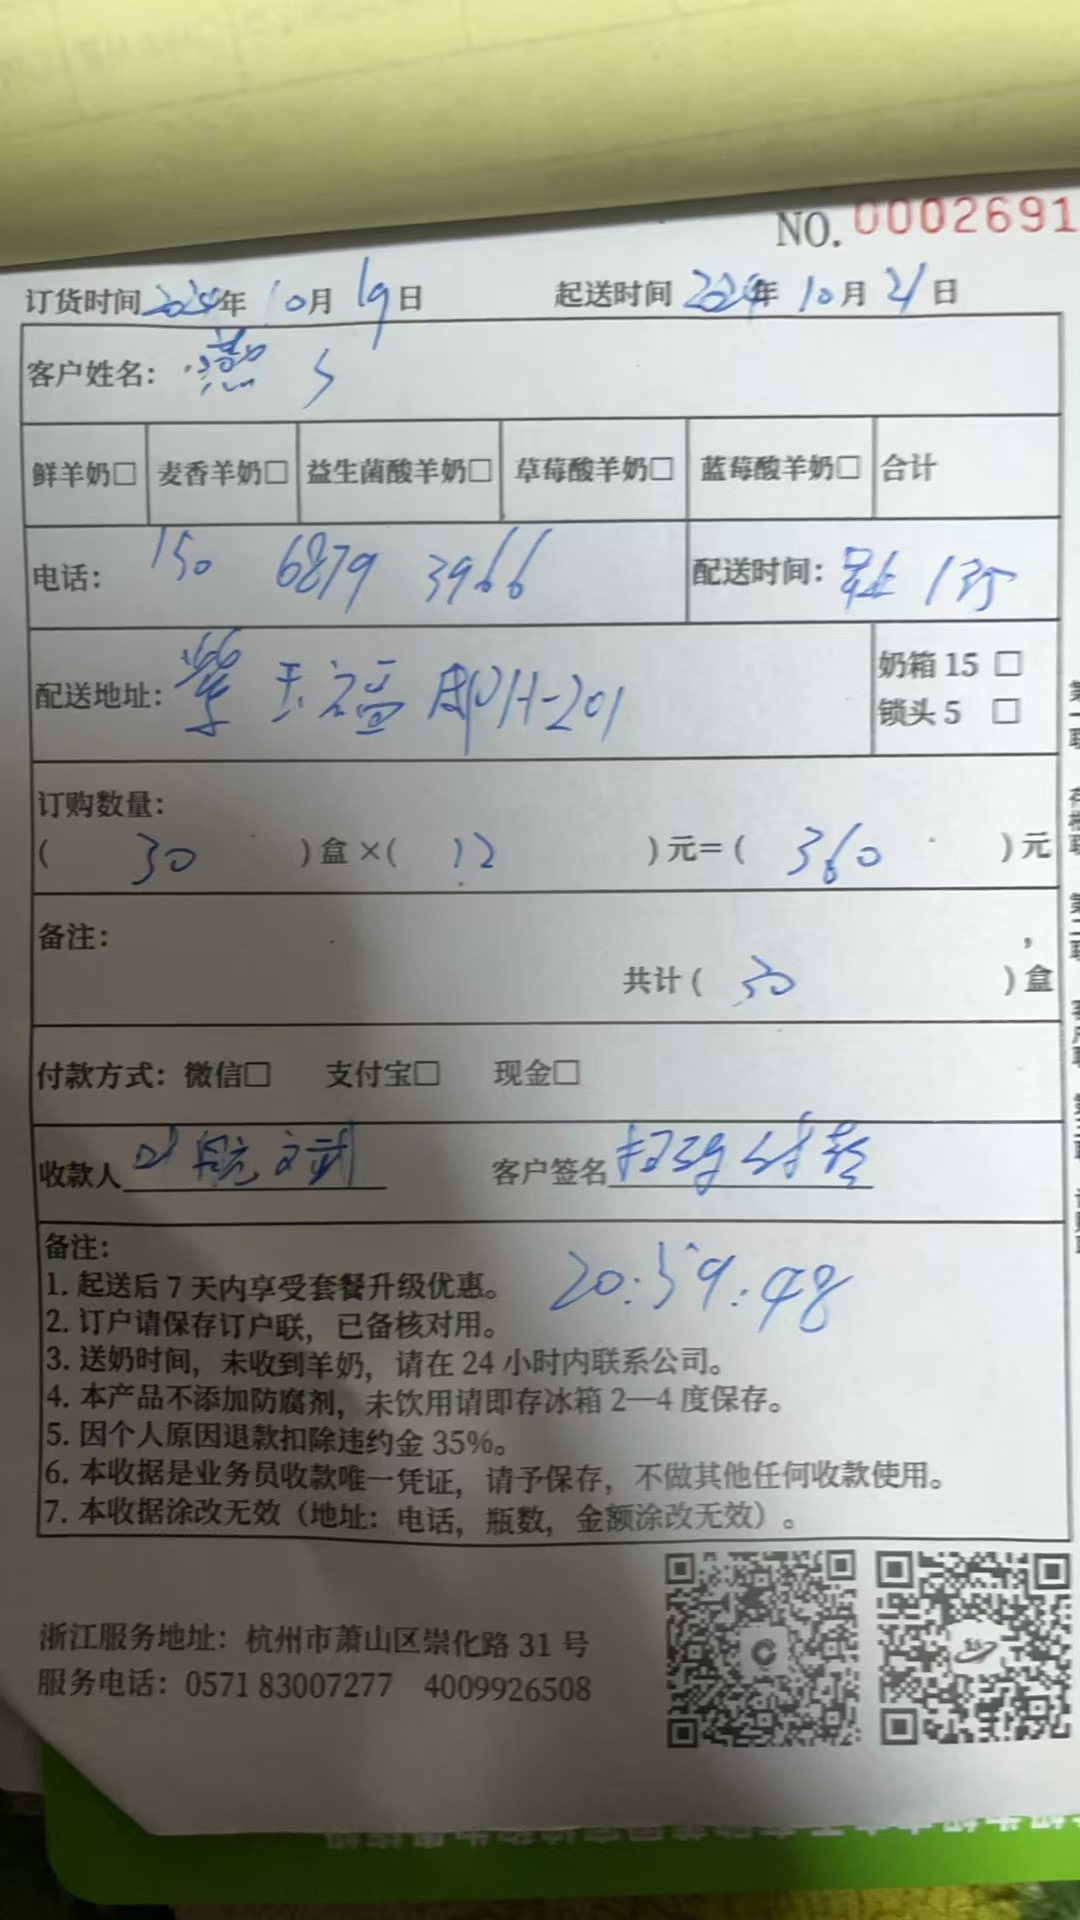 NO. 0002691
订货时间 2024年 10月 19日 起送时间 2024年 10月 21日
客户姓名：
鲜羊奶□ 麦香羊奶□ 益生菌酸羊奶□ 草莓酸羊奶□ 蓝莓酸羊奶□ 合计
电话： 150 6879 3966 配送时间： 135
配送地址： 紫玉福邸 1-201 奶箱 15 □
锁头 5 □
订购数量：
( 30 ) 盒 ×( 12 ) 元= ( 360 ) 元
备注：
共计 ( 30 ) 盒
付款方式： 微信□ 支付宝□ 现金□
收款人 客户签名
备注： 20:39:48
1. 起送后 7 天内享受套餐升级优惠。
2. 订户请保存订户联，已备核对用。
3. 送奶时间，未收到羊奶，请在 24 小时内联系公司。
4. 本产品不添加防腐剂，未饮用请即存冰箱 2—4 度保存。
5. 因个人原因退款扣除违约金 35%。
6. 本收据是业务员收款唯一凭证，请予保存，不做其他任何收款使用。
7. 本收据涂改无效（地址：电话，瓶数，金额涂改无效）。
浙江服务地址：杭州市萧山区崇化路 31 号
服务电话：0571 83007277 4009926508